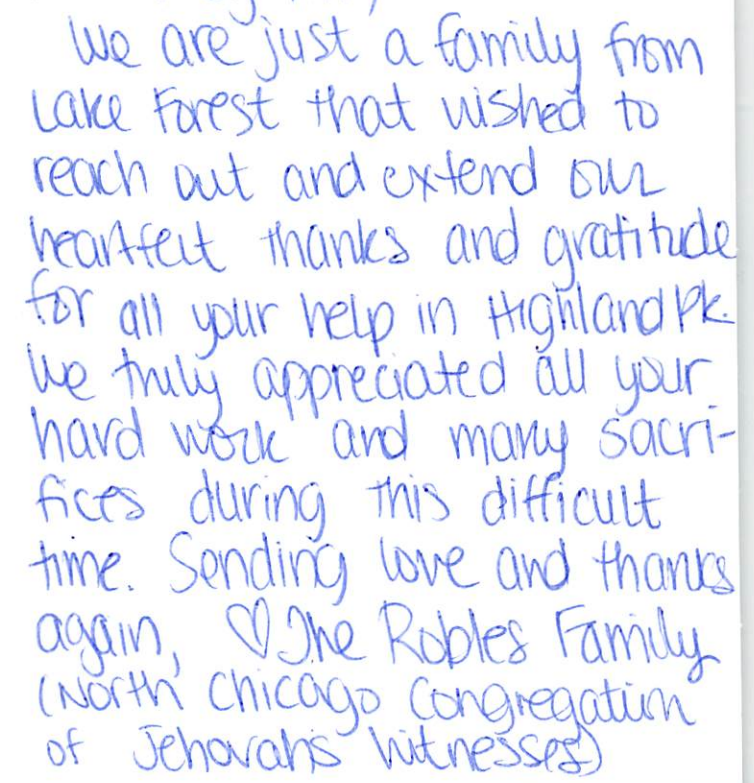 We are just a family from
Lake Forest that wished to
reach out and extend our
heartfelt thanks and gratitude
for all your help in Highland Pk.
We truly appreciated all your
hard work and many sacri-
fices during this difficult
time. Sending love and thanks
again, ♡ The Robles Family
(North Chicago Congregation
of Jehovah's Witnesses)